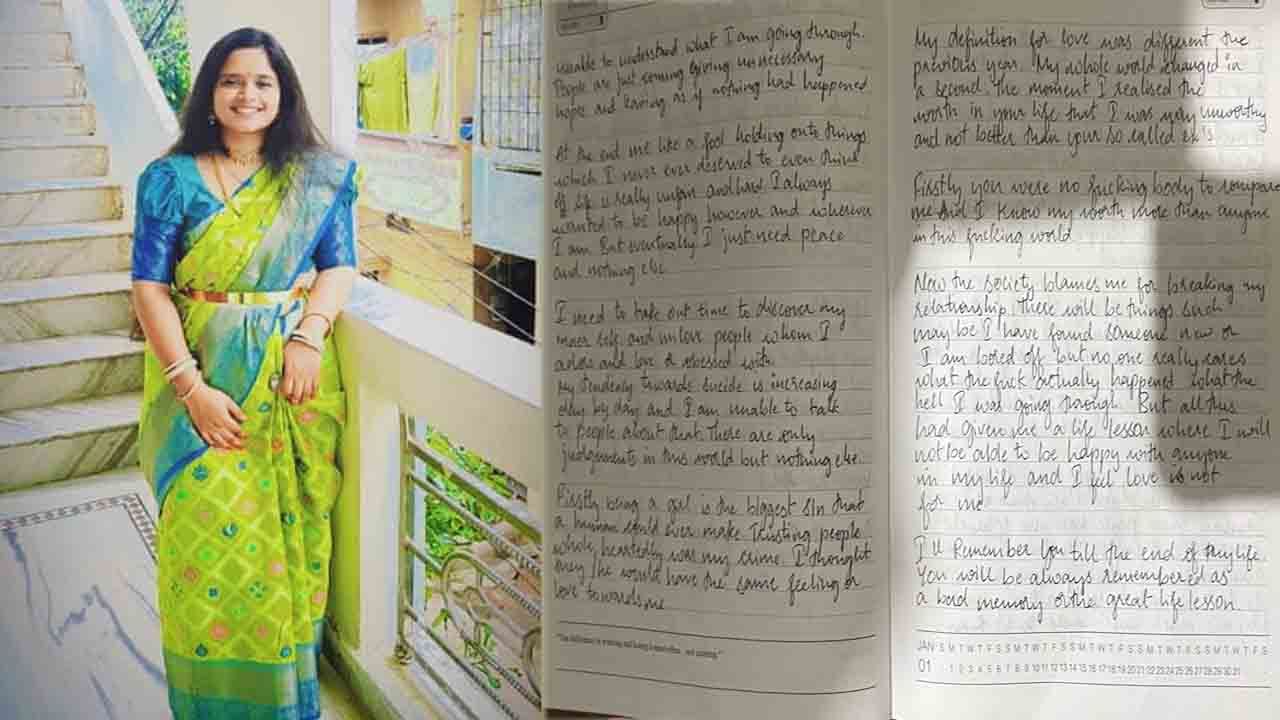 unable to understand what I am going through.
People are just coming giving unnecessary
hopes and leaving as if nothing had happened
At the end me like a fool holding onto things
which I never ever deserved to even think
of. Life is really unfair and hard. I always
wanted to be happy however and wherever
I am. But eventually I just need peace
and nothing else.
I need to take out time to discover my
inner self and unlove people whom I
adore and love or obsessed with
my tendency towards sucide is increasing
day by day and I am unable to talk
to people about that. There are only
judgments in this world but nothing else.
Firstly being a girl is the biggest sin that
a human could ever make. Trusting people
whole heartedly was my crime. I thought
he would have the same feeling or
love towards me
My definition for love was different the
previous year. My whole world changed in
a second. The moment I realised the
worth in your life that I was unworthy
and not better than your so called ex's
Firstly you were no fucking body to compare
me and I know my worth more than anyone
in this fucking world
Now the society blames me for breaking my
relationship. There will be things such
maybe I have found someone new or
I am bored off but no one really cares
what the fuck actually happened what the
hell I was going through. But all this
had given me a life lesson where I will
not be able to be happy with anyone
in my life and I feel love is not
for me
I'll Remember You till the end of my life.
You will be always remembered as
a bad memory or the great life lesson.
JAN S M T W T F S S M T W T F S S M T W T F S S M T W T F S S M T W T F S
01 1 2 3 4 5 6 7 8 9 10 11 12 13 14 15 16 17 18 19 20 21 22 23 24 25 26 27 28 29 30 31